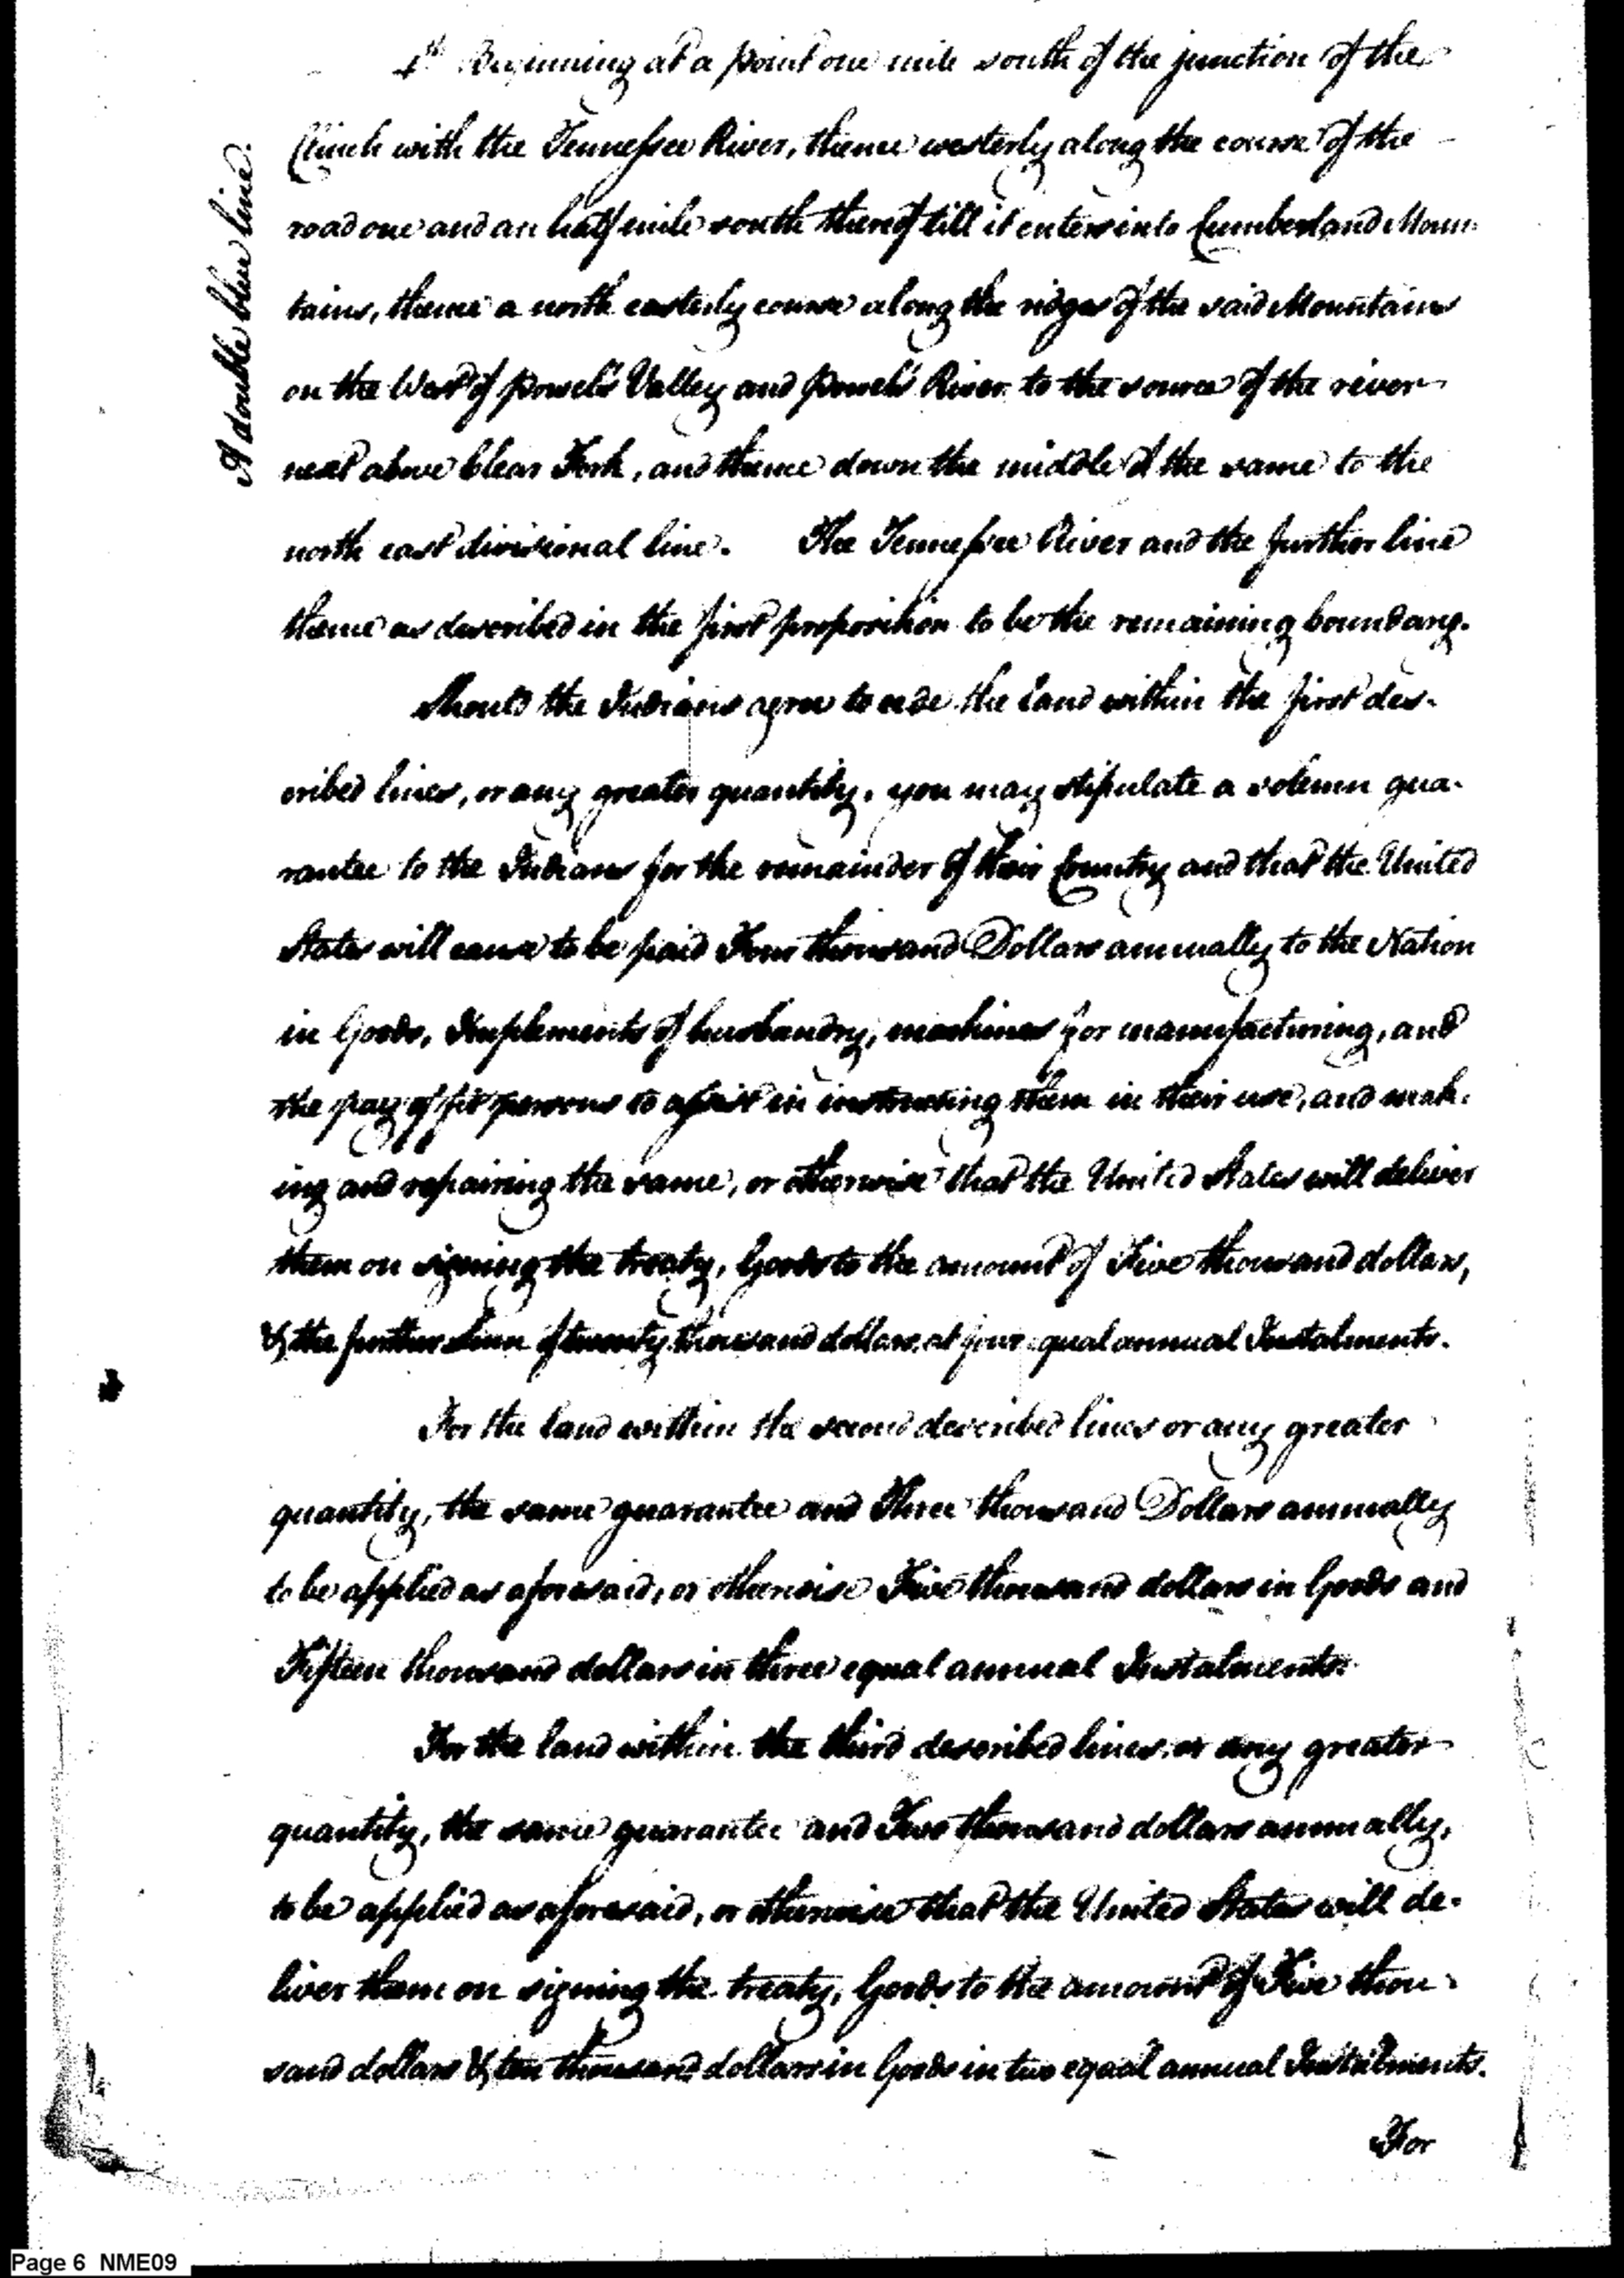 4th Beginning at a point one mile south of the junction of the
Clinch with the Tennessee River, thence westerly along the course of the
road one and an half mile south thereof till it enters into Cumberland Moun-
tains, thence a north easterly course along the ridges of the said Mountains
on the West of Powels Valley and Powels River to the source of the river
next above Clear Fork, and thence down the middle of the same to the
north east divisional line. The Tennessee River and the further line
thence as described in the first proposition to be the remaining boundary.
A double blue line.
Should the Indians agree to cede the land within the first des-
cribed lines, or any greater quantity, you may stipulate a solemn gua-
rantee to the Indians for the remainder of their Country and that the United
States will cause to be paid Four thousand Dollars annually to the Nation
in Goods, Implements of husbandry, machines for manufacturing, and
the pay of fit persons to assist in instructing them in their use, and mak-
ing and repairing the same, or otherwise that the United States will deliver
them on signing the treaty, Goods to the amount of Five thousand dollars,
& the further Sum of twenty thousand dollars, at four equal annual Instalments.
For the land within the second described lines or any greater
quantity, the same guarantee and Three thousand Dollars annually
to be applied as aforesaid, or otherwise Five thousand dollars in Goods and
Fifteen thousand dollars in three equal annual Instalments.
For the land within the third described lines or any greater
quantity, the same guarantee and Two thousand dollars annually,
to be applied as aforesaid, or otherwise that the United States will de-
liver them on signing the treaty, Goods to the amount of Five thou-
sand dollars & ten thousand dollars in Goods in two equal annual Instalments.
For
Page 6 NME09